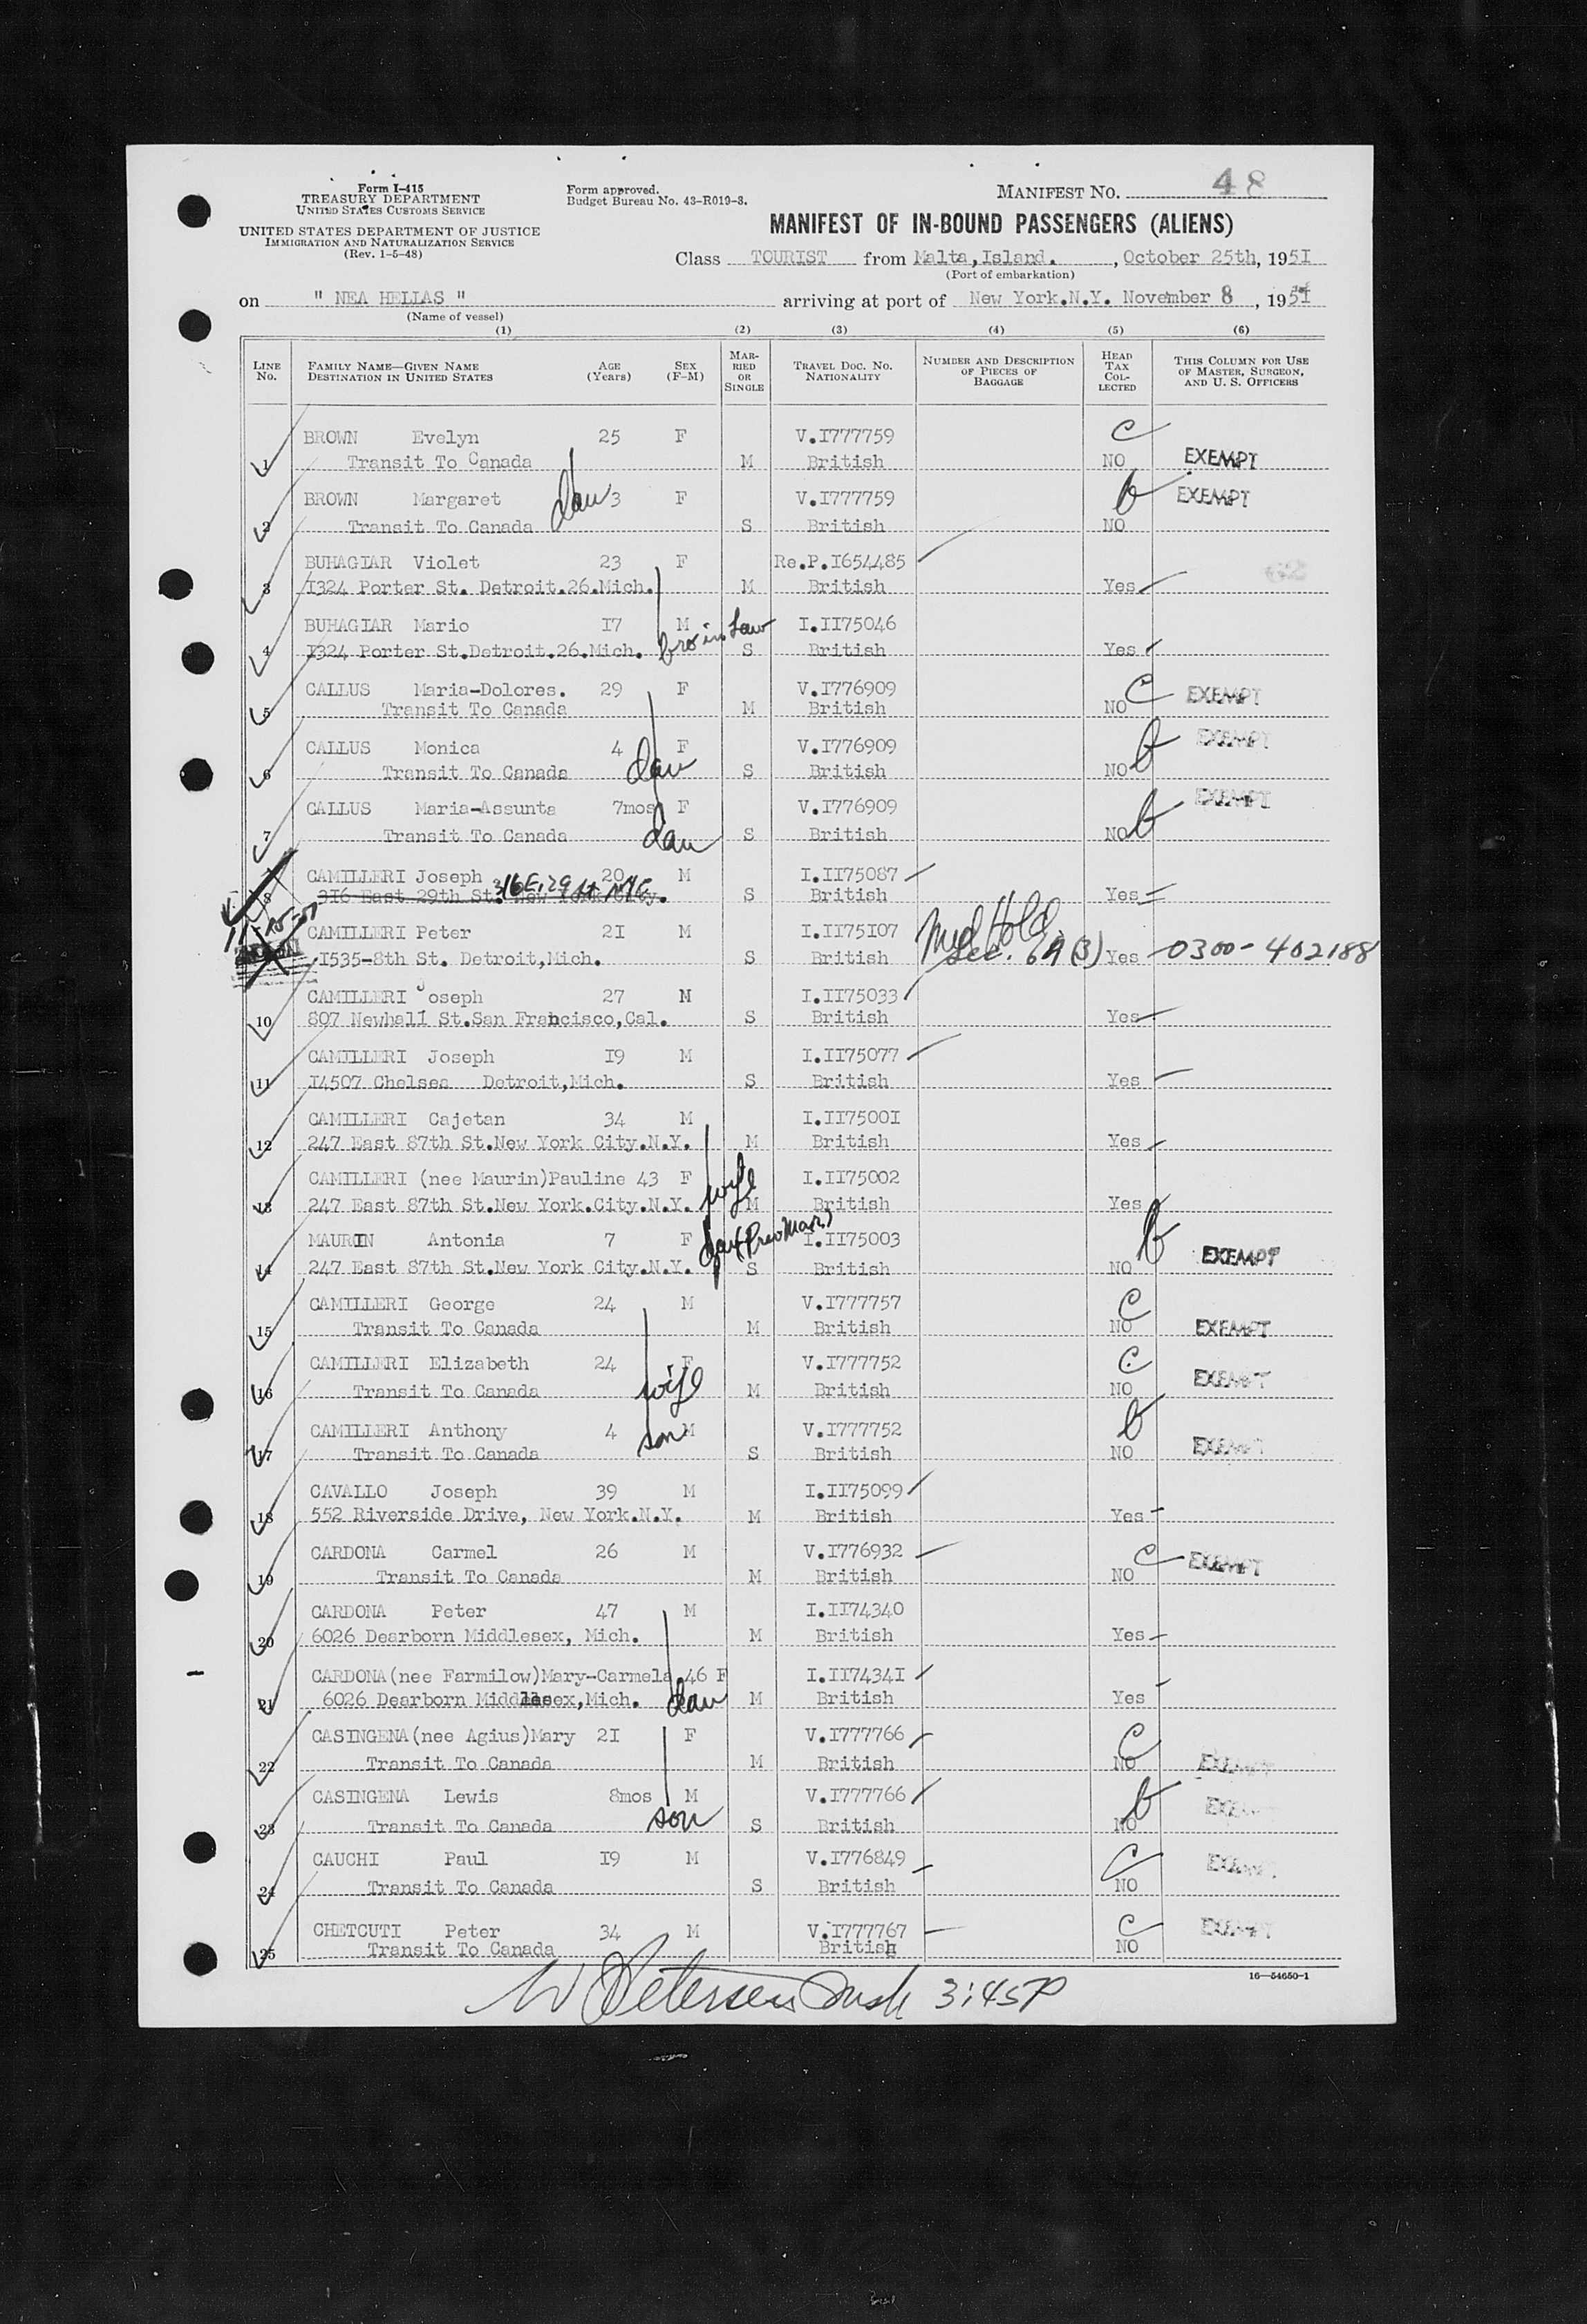 Form I-415
TREASURY DEPARTMENT
UNITED STATES CUSTOMS SERVICE
UNITED STATES DEPARTMENT OF JUSTICE
IMMIGRATION AND NATURALIZATION SERVICE
(Rev. 1-5-48)
Form approved.
Budget Bureau No. 43-R019-3.
MANIFEST NO. 48
MANIFEST OF IN-BOUND PASSENGERS (ALIENS)
Class TOURIST from Malta,Island. , October 25th, 195I
(Port of embarkation)
on " NEA HELLAS " arriving at port of New York.N.Y. November 8 , 1951
(Name of vessel)
(1) (2) (3) (4) (5) (6)
LINE No. FAMILY NAME—GIVEN NAME DESTINATION IN UNITED STATES AGE (Years) SEX (F-M) MARRIED OR SINGLE TRAVEL DOC. NO. NATIONALITY NUMBER AND DESCRIPTION OF PIECES OF BAGGAGE HEAD TAX COLLECTED THIS COLUMN FOR USE OF MASTER, SURGEON, AND U. S. OFFICERS
BROWN Evelyn 25 F V.I777759 C
1 Transit To Canada M British NO EXEMPT
BROWN Margaret dau 3 F V.I777759 b EXEMPT
2 Transit To Canada S British NO
BUHAGIAR Violet 23 F Re.P.I654485
3 I324 Porter St. Detroit.26.Mich. M British Yes
BUHAGIAR Mario I7 M bro in Law I.II75046
4 I324 Porter St.Detroit.26.Mich. S British Yes
CALLUS Maria-Dolores. 29 F V.I776909 C EXEMPT
5 Transit To Canada M British NO
CALLUS Monica 4 F V.I776909 b EXEMPT
6 Transit To Canada dau S British NO
CALLUS Maria-Assunta 7mos F V.I776909 b EXEMPT
7 Transit To Canada dau S British NO
CAMILLERI Joseph 20 M I.II75087
8 3I6 East 29th St. New York City. 316 E. 29 St NYC S British Yes
CAMILLERI Peter 2I M I.II75107 Med Hold
I535-8th St. Detroit,Mich. S British Sec. 69(3) Yes 0300-402188
CAMILLERI Joseph 27 M I.II75033
10 807 Newhall St.San Francisco,Cal. S British Yes
CAMILLERI Joseph I9 M I.II75077
11 I4507 Chelsea Detroit,Mich. S British Yes
CAMILLERI Cajetan 34 M I.II7500I
12 247 East 87th St.New York City.N.Y. M British Yes
CAMILLERI (nee Maurin)Pauline 43 F wife I.II75002
13 247 East 87th St.New York.City.N.Y. M British Yes
MAURIN Antonia 7 F dau (Prev Mar.) I.II75003 b EXEMPT
14 247 East 87th St.New York City.N.Y. S British NO
CAMILLERI George 24 M V.I777757 C
15 Transit To Canada M British NO EXEMPT
CAMILLERI Elizabeth 24 F V.I777752 C EXEMPT
16 Transit To Canada wife M British NO
CAMILLERI Anthony 4 son M V.I777752 b EXEMPT
17 Transit To Canada S British NO
CAVALLO Joseph 39 M I.II75099
18 552 Riverside Drive, New York.N.Y. M British Yes
CARDONA Carmel 26 M V.I776932 C EXEMPT
19 Transit To Canada M British NO
CARDONA Peter 47 M I.II74340
20 6026 Dearborn Middlesex, Mich. M British Yes
CARDONA(nee Farmilow)Mary-Carmela 46 F I.II7434I
21 6026 Dearborn Middlesex,Mich. dau M British Yes
CASINGENA(nee Agius)Mary 2I F V.I777766 C
22 Transit To Canada M British NO EXEMPT
CASINGENA Lewis 8mos M V.I777766 b EXEMPT
23 Transit To Canada son S British NO
CAUCHI Paul I9 M V.I776849 C EXEMPT
24 Transit To Canada S British NO
CHETCUTI Peter 34 M V.I777767 C EXEMPT
25 Transit To Canada British NO
16—54650-1
W Petersen Insp 3:45P